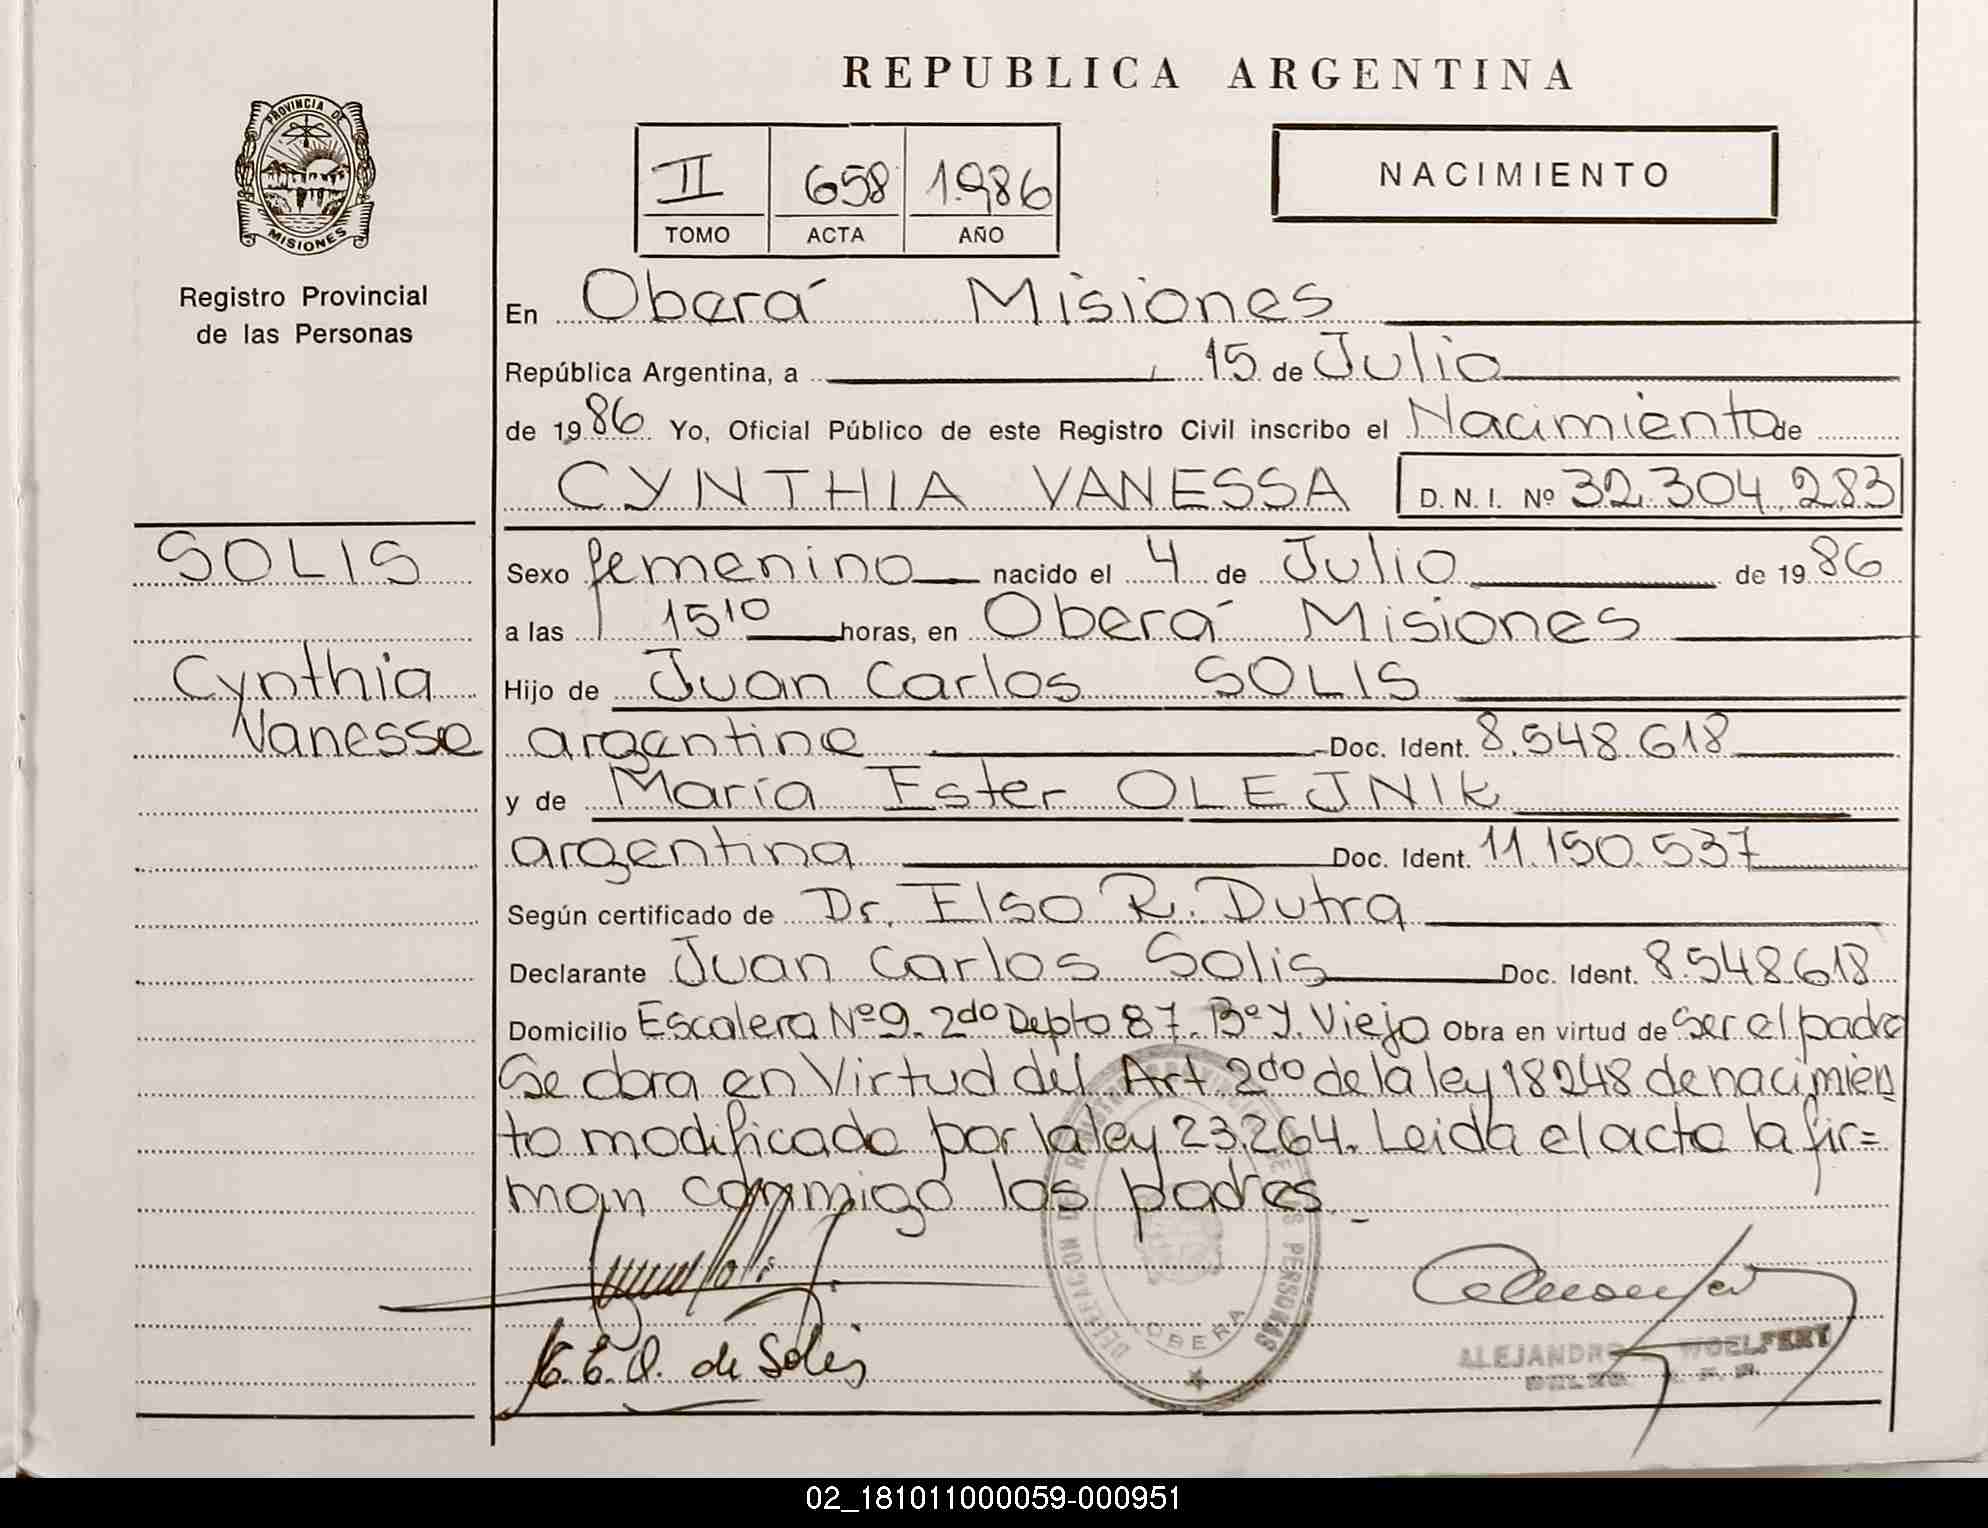 REPUBLICA ARGENTINA
PROVINCIA DE MISIONES
II 658 1.986
TOMO ACTA AÑO
NACIMIENTO
Registro Provincial
de las Personas
En Oberá Misiones
República Argentina, a 15 de Julio
de 1986 Yo, Oficial Público de este Registro Civil inscribo el Nacimiento de
CYNTHIA VANESSA D. N. I. Nº 32.304.283
SOLIS
Cynthia
Vanessa
Sexo femenino nacido el 4 de Julio de 1986
a las 15 10 horas, en Oberá Misiones
Hijo de Juan Carlos SOLIS
argentino Doc. Ident. 8.548.618
y de María Ester OLEJNIK
argentina Doc. Ident. 11.150.537
Según certificado de Dr. Elso R. Dutra
Declarante Juan Carlos Solis Doc. Ident. 8.548.618
Domicilio Escalera Nº 9. 2do Depto 87. Bº Y. Viejo Obra en virtud de ser el padre
Se obra en Virtud del Art 2do de la ley 18248 de nacimien
to modificado por la ley 23.264. Leida el acta la fir=
man conmigo los padres
DELEGACION DEL REGISTRO PROVINCIAL DE LAS PERSONAS
OBERA
E. O. de Solis
ALEJANDRO WOELFERT
02_181011000059-000951